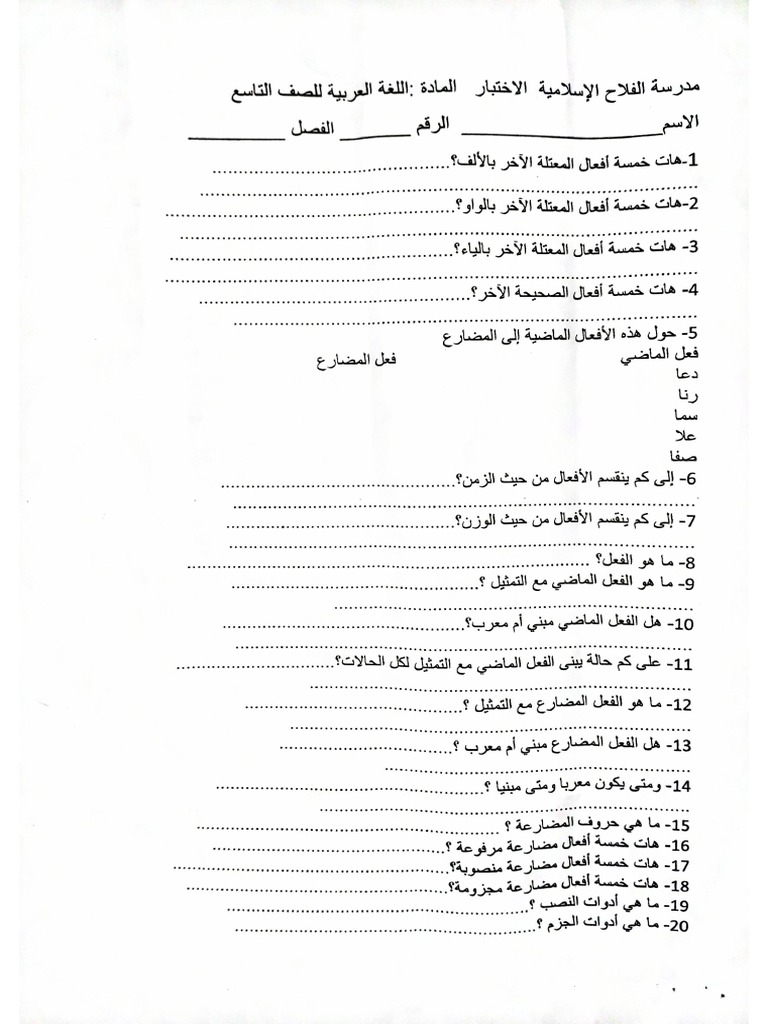 مدرسة الفلاح الإسلامية الاختبار المادة :اللغة العربية للصف التاسع
الاسم____________________ الرقم _______ الفصل __________
1-هات خمسة أفعال المعتلة الآخر بالألف؟........................................
................................................................................
2-هات خمسة أفعال المعتلة الآخر بالواو؟........................................
................................................................................
3- هات خمسة أفعال المعتلة الآخر بالياء؟........................................
................................................................................
4- هات خمسة أفعال الصحيحة الآخر؟........................................
................................................................................
5- حول هذه الأفعال الماضية إلى المضارع
فعل الماضي فعل المضارع
دعا
رنا
سما
علا
صفا
6- إلى كم ينقسم الأفعال من حيث الزمن؟........................................
................................................................................
7- إلى كم ينقسم الأفعال من حيث الوزن؟........................................
................................................................................
8- ما هو الفعل؟ ........................................
9- ما هو الفعل الماضي مع التمثيل ؟........................................
................................................................................
10- هل الفعل الماضي مبني أم معرب؟........................................
................................................................................
11- على كم حالة يبنى الفعل الماضي مع التمثيل لكل الحالات؟..............................
................................................................................
12- ما هو الفعل المضارع مع التمثيل ؟........................................
................................................................................
13- هل الفعل المضارع مبني أم معرب ؟..............................
................................................................................
14- ومتى يكون معربا ومتى مبنيا ؟........................................
................................................................................
15- ما هي حروف المضارعة ؟ ........................................
16- هات خمسة أفعال مضارعة مرفوعة ؟........................................
17- هات خمسة أفعال مضارعة منصوبة؟........................................
18- هات خمسة أفعال مضارعة مجزومة؟........................................
19- ما هي أدوات النصب ؟........................................
20- ما هي أدوات الجزم ؟........................................